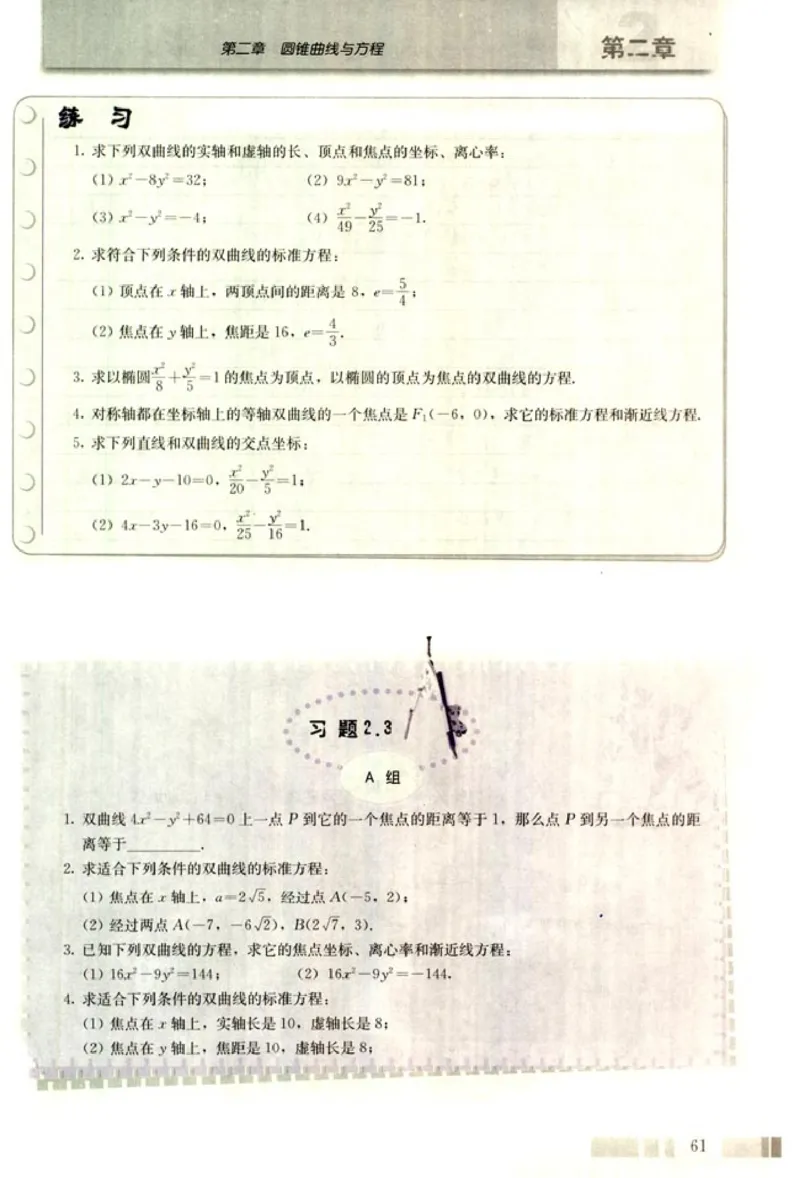 第二章 圆锥曲线与方程
第二章
练 习
1. 求下列双曲线的实轴和虚轴的长、顶点和焦点的坐标、离心率:
(1) x²-8y²=32; (2) 9x²-y²=81;
(3) x²-y²=-4; (4) x²/49-y²/25=-1.
2. 求符合下列条件的双曲线的标准方程:
(1) 顶点在 x 轴上,两顶点间的距离是 8,e=5/4;
(2) 焦点在 y 轴上,焦距是 16,e=4/3.
3. 求以椭圆x²/8+y²/5=1的焦点为顶点,以椭圆的顶点为焦点的双曲线的方程.
4. 对称轴都在坐标轴上的等轴双曲线的一个焦点是 F₁(-6,0),求它的标准方程和渐近线方程.
5. 求下列直线和双曲线的交点坐标:
(1) 2x-y-10=0,x²/20-y²/5=1;
(2) 4x-3y-16=0,x²/25-y²/16=1.
习 题 2.3
A 组
1. 双曲线 4x²-y²+64=0 上一点 P 到它的一个焦点的距离等于 1,那么点 P 到另一个焦点的距
离等于________.
2. 求适合下列条件的双曲线的标准方程:
(1) 焦点在 x 轴上,a=2√5,经过点 A(-5,2);
(2) 经过两点 A(-7,-6√2),B(2√7,3).
3. 已知下列双曲线的方程,求它的焦点坐标、离心率和渐近线方程:
(1) 16x²-9y²=144; (2) 16x²-9y²=-144.
4. 求适合下列条件的双曲线的标准方程:
(1) 焦点在 x 轴上,实轴长是 10,虚轴长是 8;
(2) 焦点在 y 轴上,焦距是 10,虚轴长是 8;
61